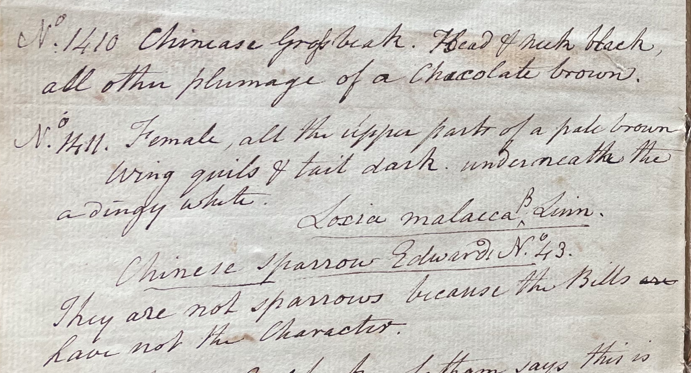 No. 1410 Chinease Grosbeak. Head & neck black,
all other plumage of a Chacolate brown.
No. 1411. Female, all the upper parts of a pale brown
wing quils & tail dark. underneathe the
a dingy white.
Loxia malacca β Linn.
Chinese Sparrow Edwards No. 43.
They are not sparrows because the Bills are
have not the Character.
says this is